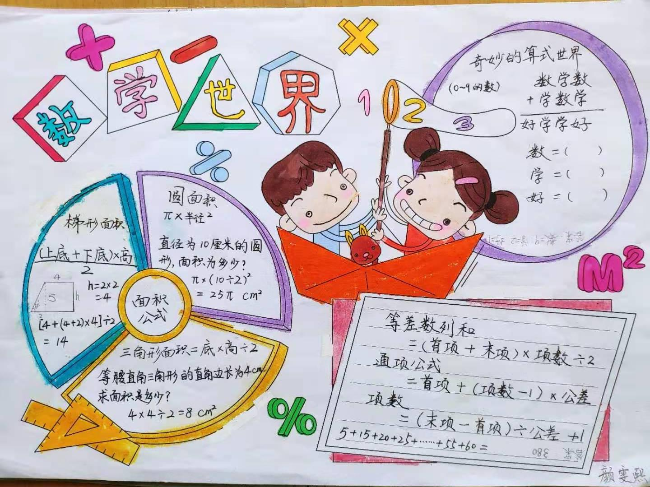 数学世界
1 0 2 3
奇妙的算式世界
(0-9的数)
数学数
+学数学
好学学好
数=( )
学=( )
好=( )
梯形面积
(上底+下底)×高
2
4
5
h=2×2
=4
[4+(4+2)×4]÷2
=14
圆面积
π×半径²
直径为10厘米的圆
形,面积为多少?
π×(10÷2)²
=25π cm²
面积
公式
三角形面积=底×高÷2
等腰直角三角形的直角边长为4cm
求面积是多少?
4×4÷2=8cm²
M²
%
等差数列和
=(首项+末项)×项数÷2
通项公式
=首项+(项数-1)×公差
项数
=(末项-首项)÷公差+1
5+15+20+25+……+55+60=
答案 380